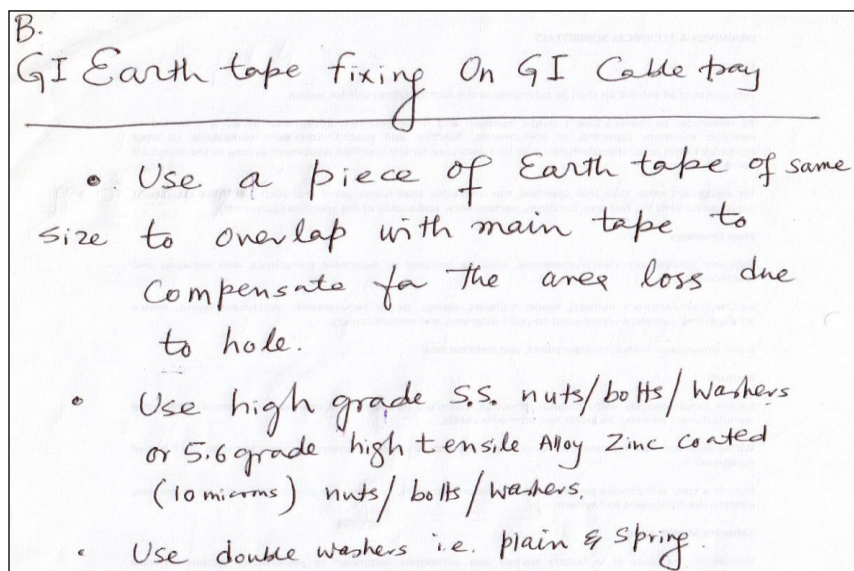 B.
GI Earth tape fixing On GI Cable tray
• Use a piece of Earth tape of same
size to overlap with main tape to
compensate for the area loss due
to hole.
• Use high grade S.S. nuts/bolts/Washers
or 5.6 grade high tensile Alloy Zinc coated
(10 microms) nuts/bolts/washers.
• Use double washers i.e. plain & spring.